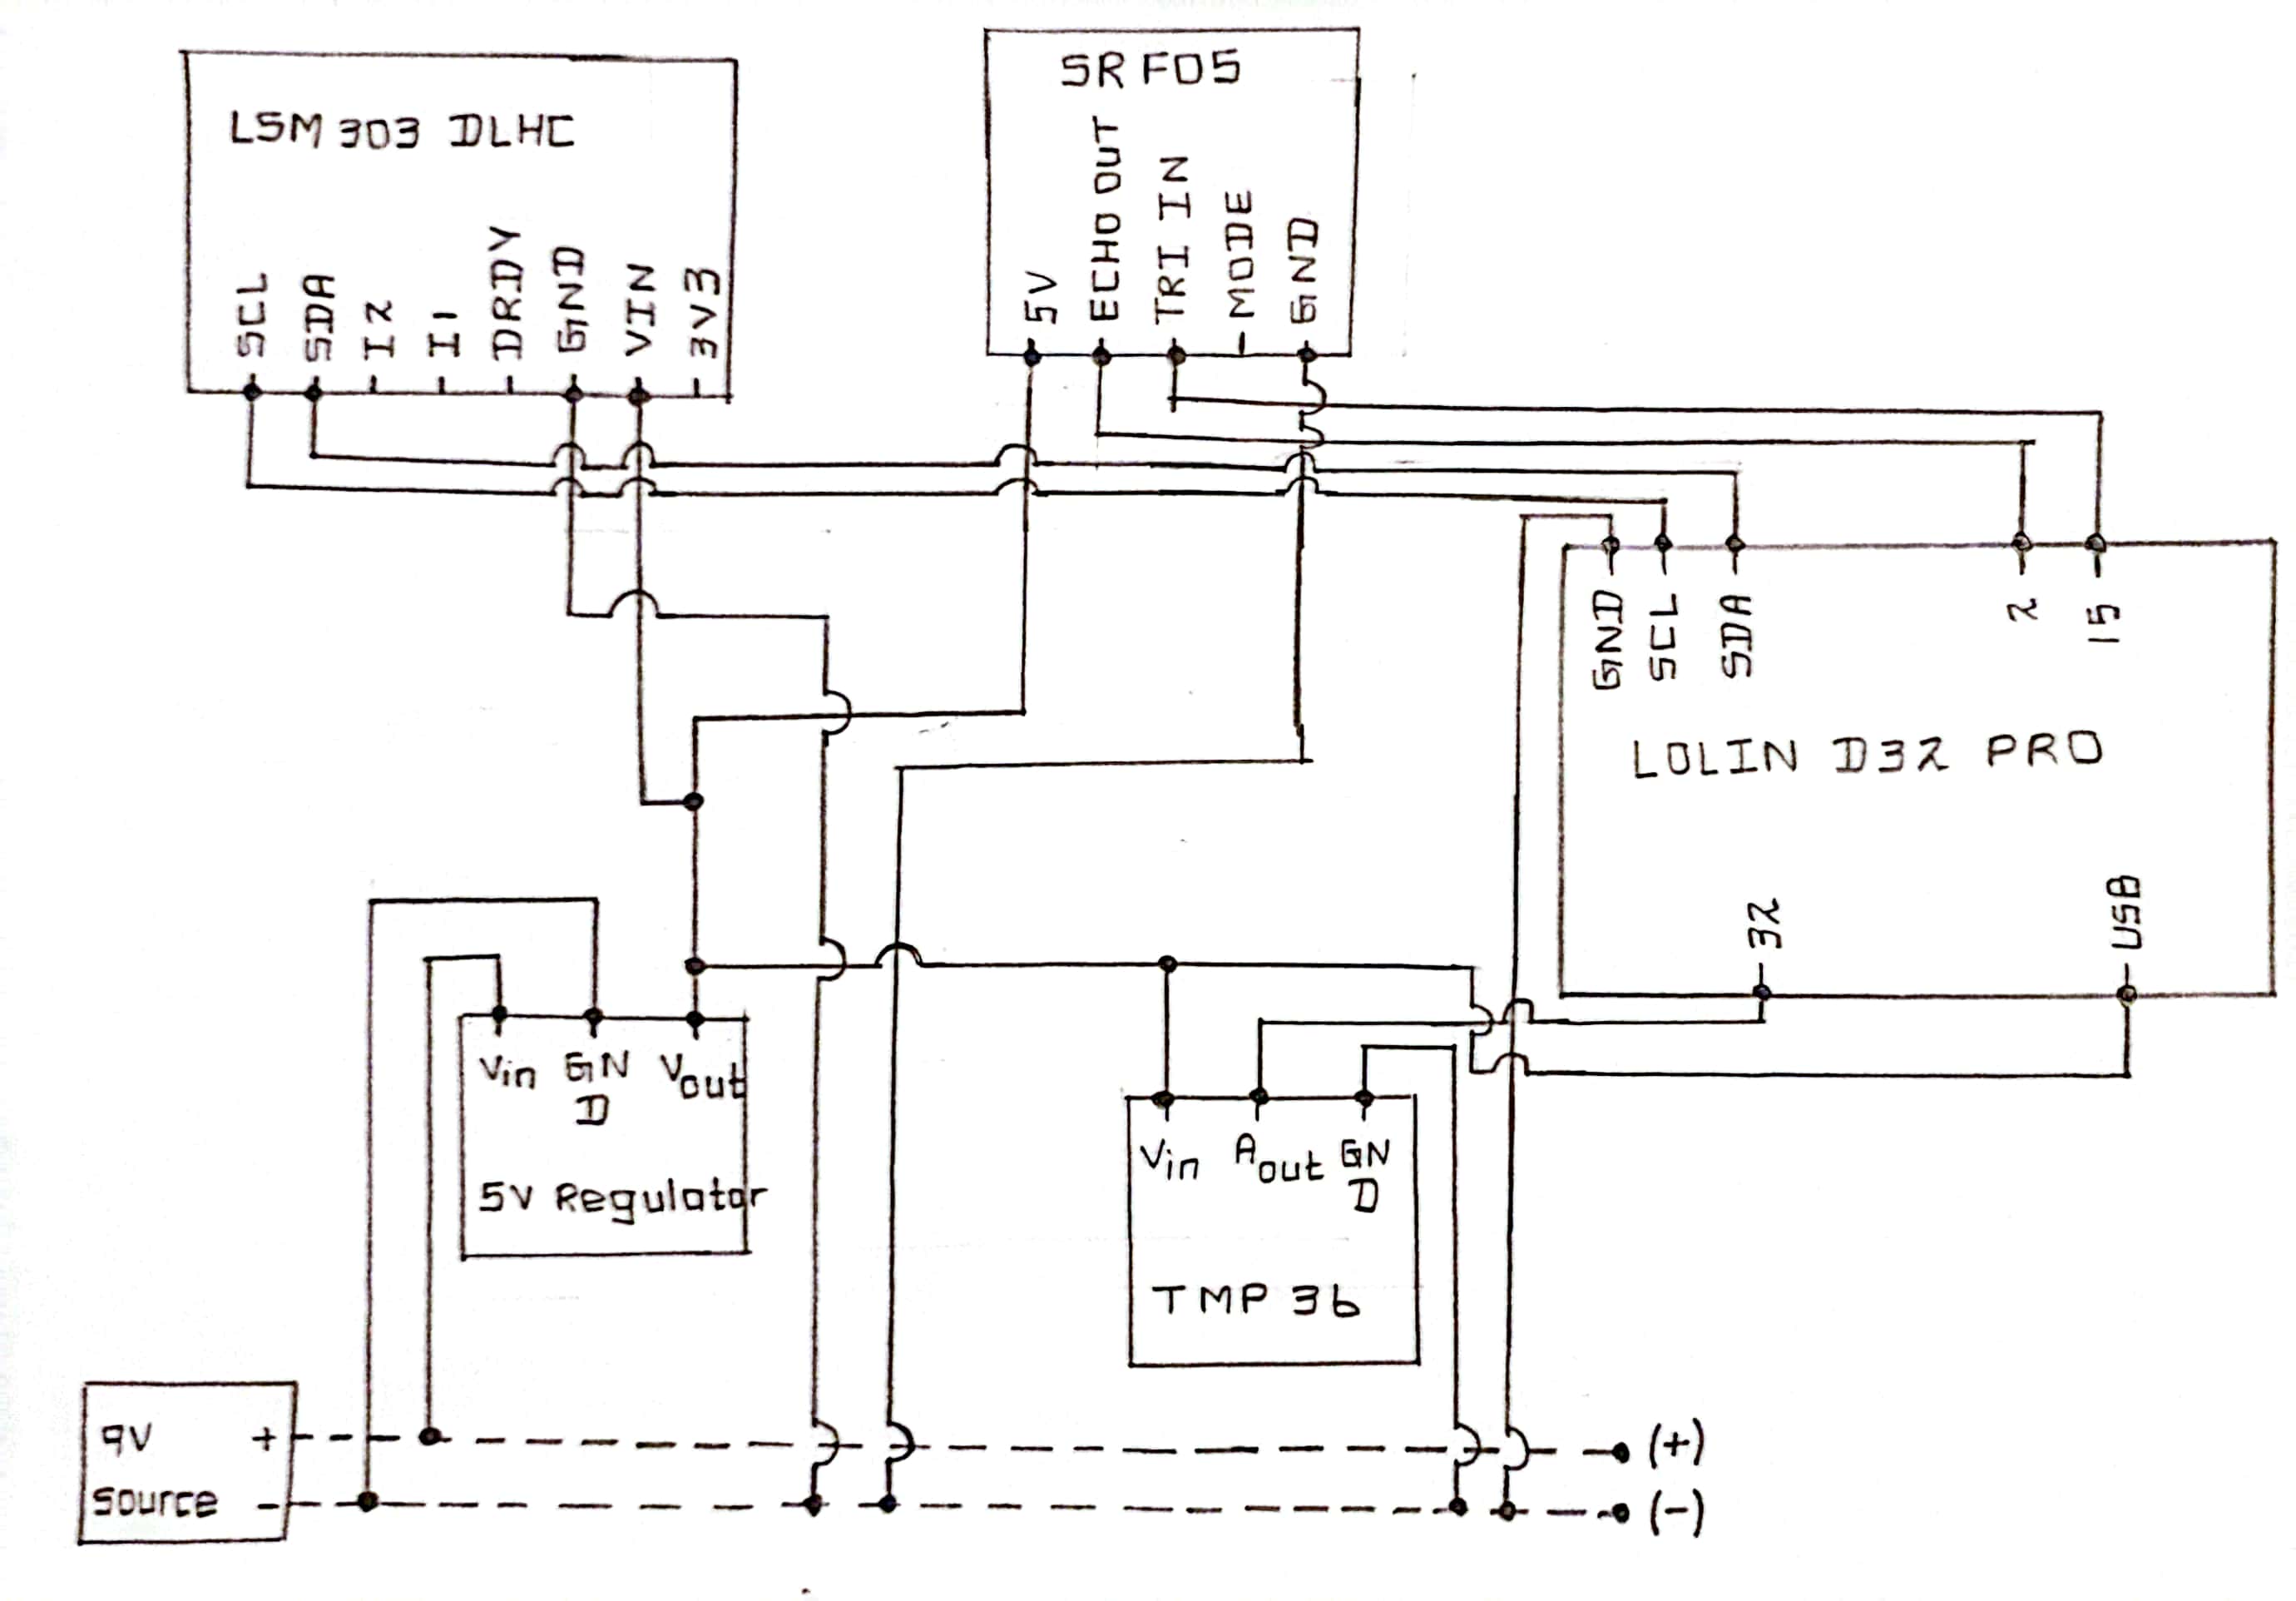 LSM 303 DLHC
SCL
SDA
I2
I1
DRDY
GND
VIN
3V3
SRF05
5V
ECHO OUT
TRI IN
MODE
GND
GND
SCL
SDA
2
15
LOLIN D32 PRO
32
USB
Vin
GND
Vout
5V Regulator
Vin
Aout
GND
TMP 36
9V +
source -
(+)
(-)